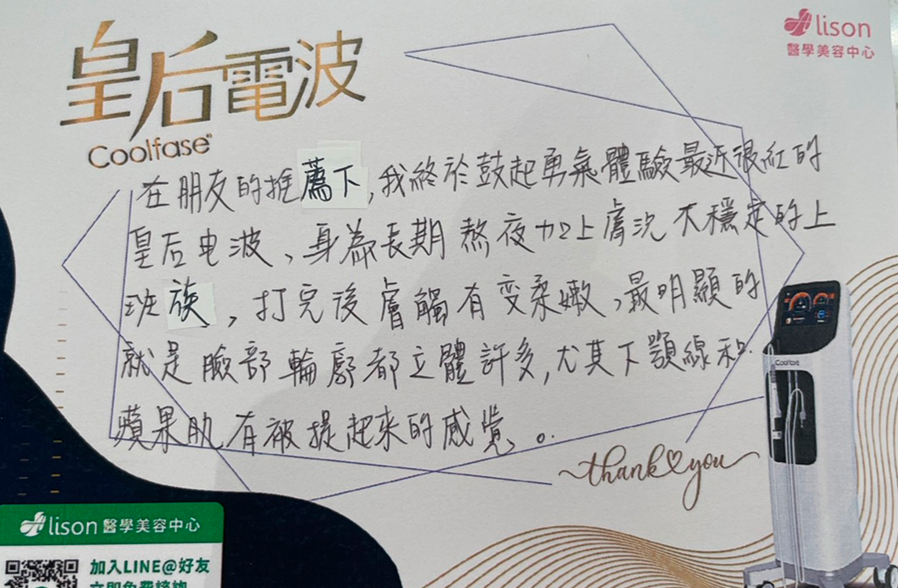 皇后電波
Coolfase
lison
醫學美容中心
在朋友的推薦下,我終於鼓起勇氣體驗最近很紅的
皇后电波、身為長期熬夜加上膚況不穩定的上
班族,打完後膚觸有变柔嫩,最明顯的
就是臉部輪廓都立體許多,尤其下顎線和
蘋果肌有被提起來的感覺。
thank you
Coolfase
lison 醫學美容中心
加入LINE@好友
立即免費諮詢